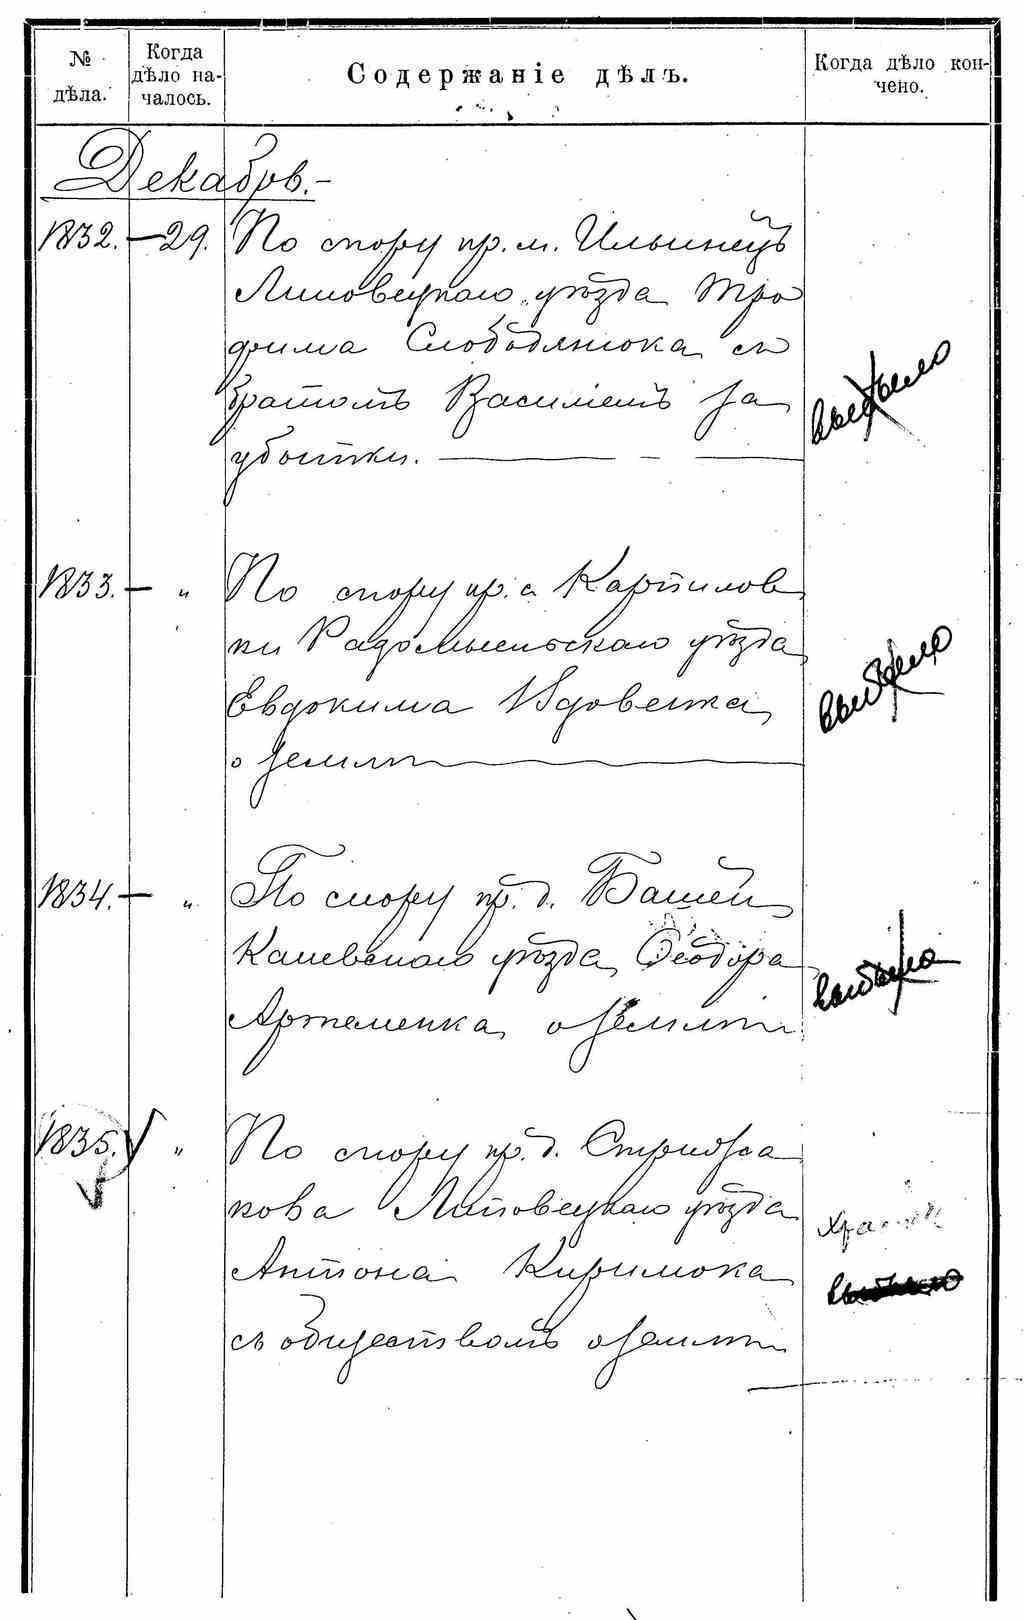 № дѣла.
Когда дѣло на-
чалось.
Содержаніе дѣлъ.
Когда дѣло кон-
чено.
Декабрь.-
1832. — 29. По спору кр. м. Ильинецъ
Липовецкаго уѣзда Тро
фима Слободянюка съ
братомъ Василіемъ за
убытки.
выбыло
1833. — " По спору кр. с. Карпилов
ки Радомысльскаго уѣзда
Евдокима Вдовенка
о землѣ
выбыло
1834. — " По спору кр. д. Башей
Каневскаго уѣзда Ѳеодора
Артеменка о землѣ
выбыло
1835. " По спору кр. д.
кова Липовецкаго уѣзда
Антона Кирилюка
съ обществомъ о землѣ
выбыло